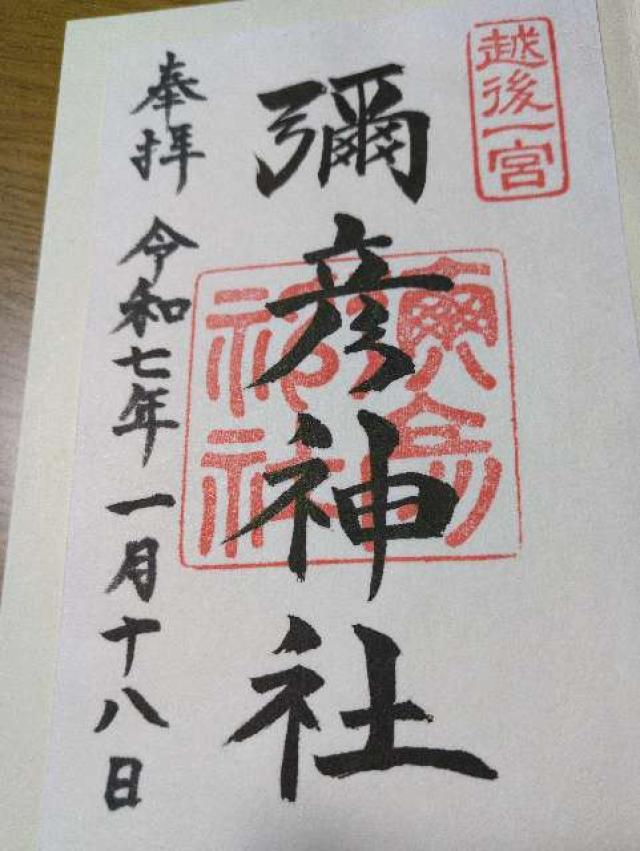 越後一宮
彌彦神社
奉拝 令和七年 一月十八日